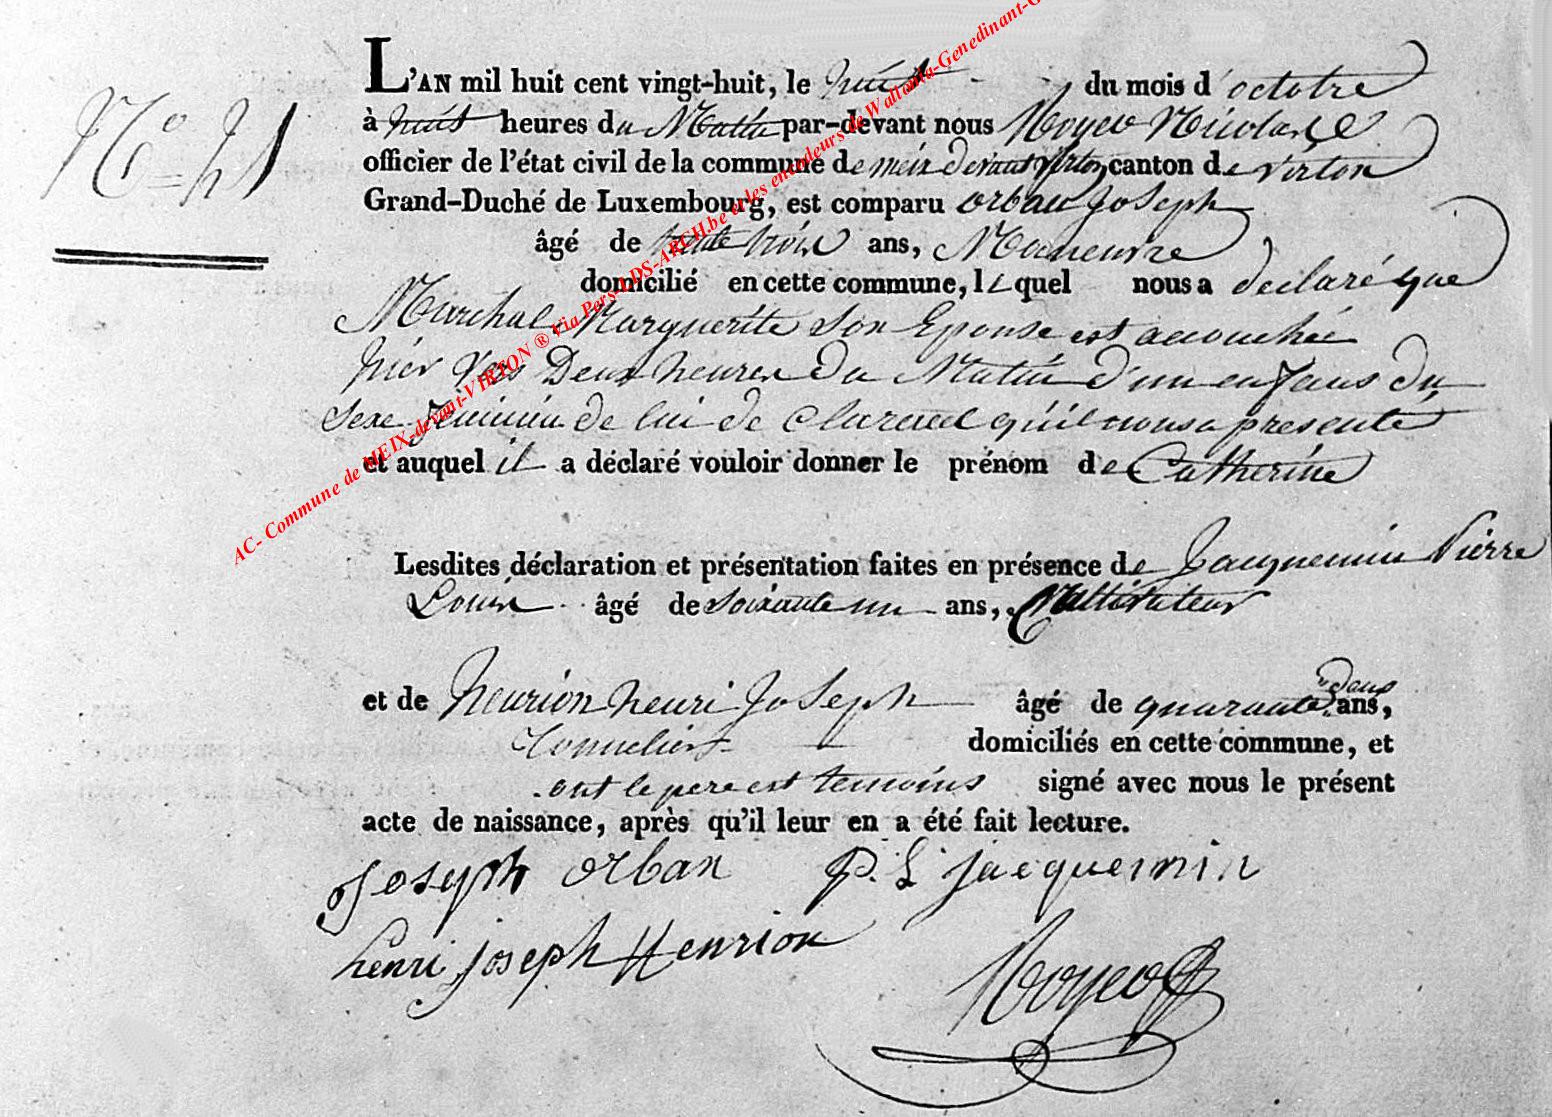 N° 41
L'AN mil huit cent vingt-huit, le huit du mois d'octobre
à huit heures du Matin par-devant nous Noyer Nicolas
officier de l'état civil de la commune de meix devant virton canton de virton
Grand-Duché de Luxembourg, est comparu orban Joseph
âgé de trente trois ans, Maneuvre
domicilié en cette commune, lequel nous a declaré que
Marchal Marguerite son Epouse est accouchée
hier vers Deux heures du Matin d'un enfans du
sexe feminin de lui declarent qu'il nous a presenté
et auquel il a déclaré vouloir donner le prénom de Catherine
Lesdites déclaration et présentation faites en présence de Jacquemin Pierre
Louis âgé de soixante un ans, Cultivateur
et de henrion henri Joseph âgé de quarante deux ans,
Tonnelier domiciliés en cette commune, et
ont le pere est temoins signé avec nous le présent
acte de naissance, après qu'il leur en a été fait lecture.
Joseph orban P. L jacquemin
henri joseph Henrion
Noyer
AC- Commune de MEIX-devant-VIRTON ® Via Pers-LDS-ARCH.be et les encodeurs de Wallonia-Genedinant-G